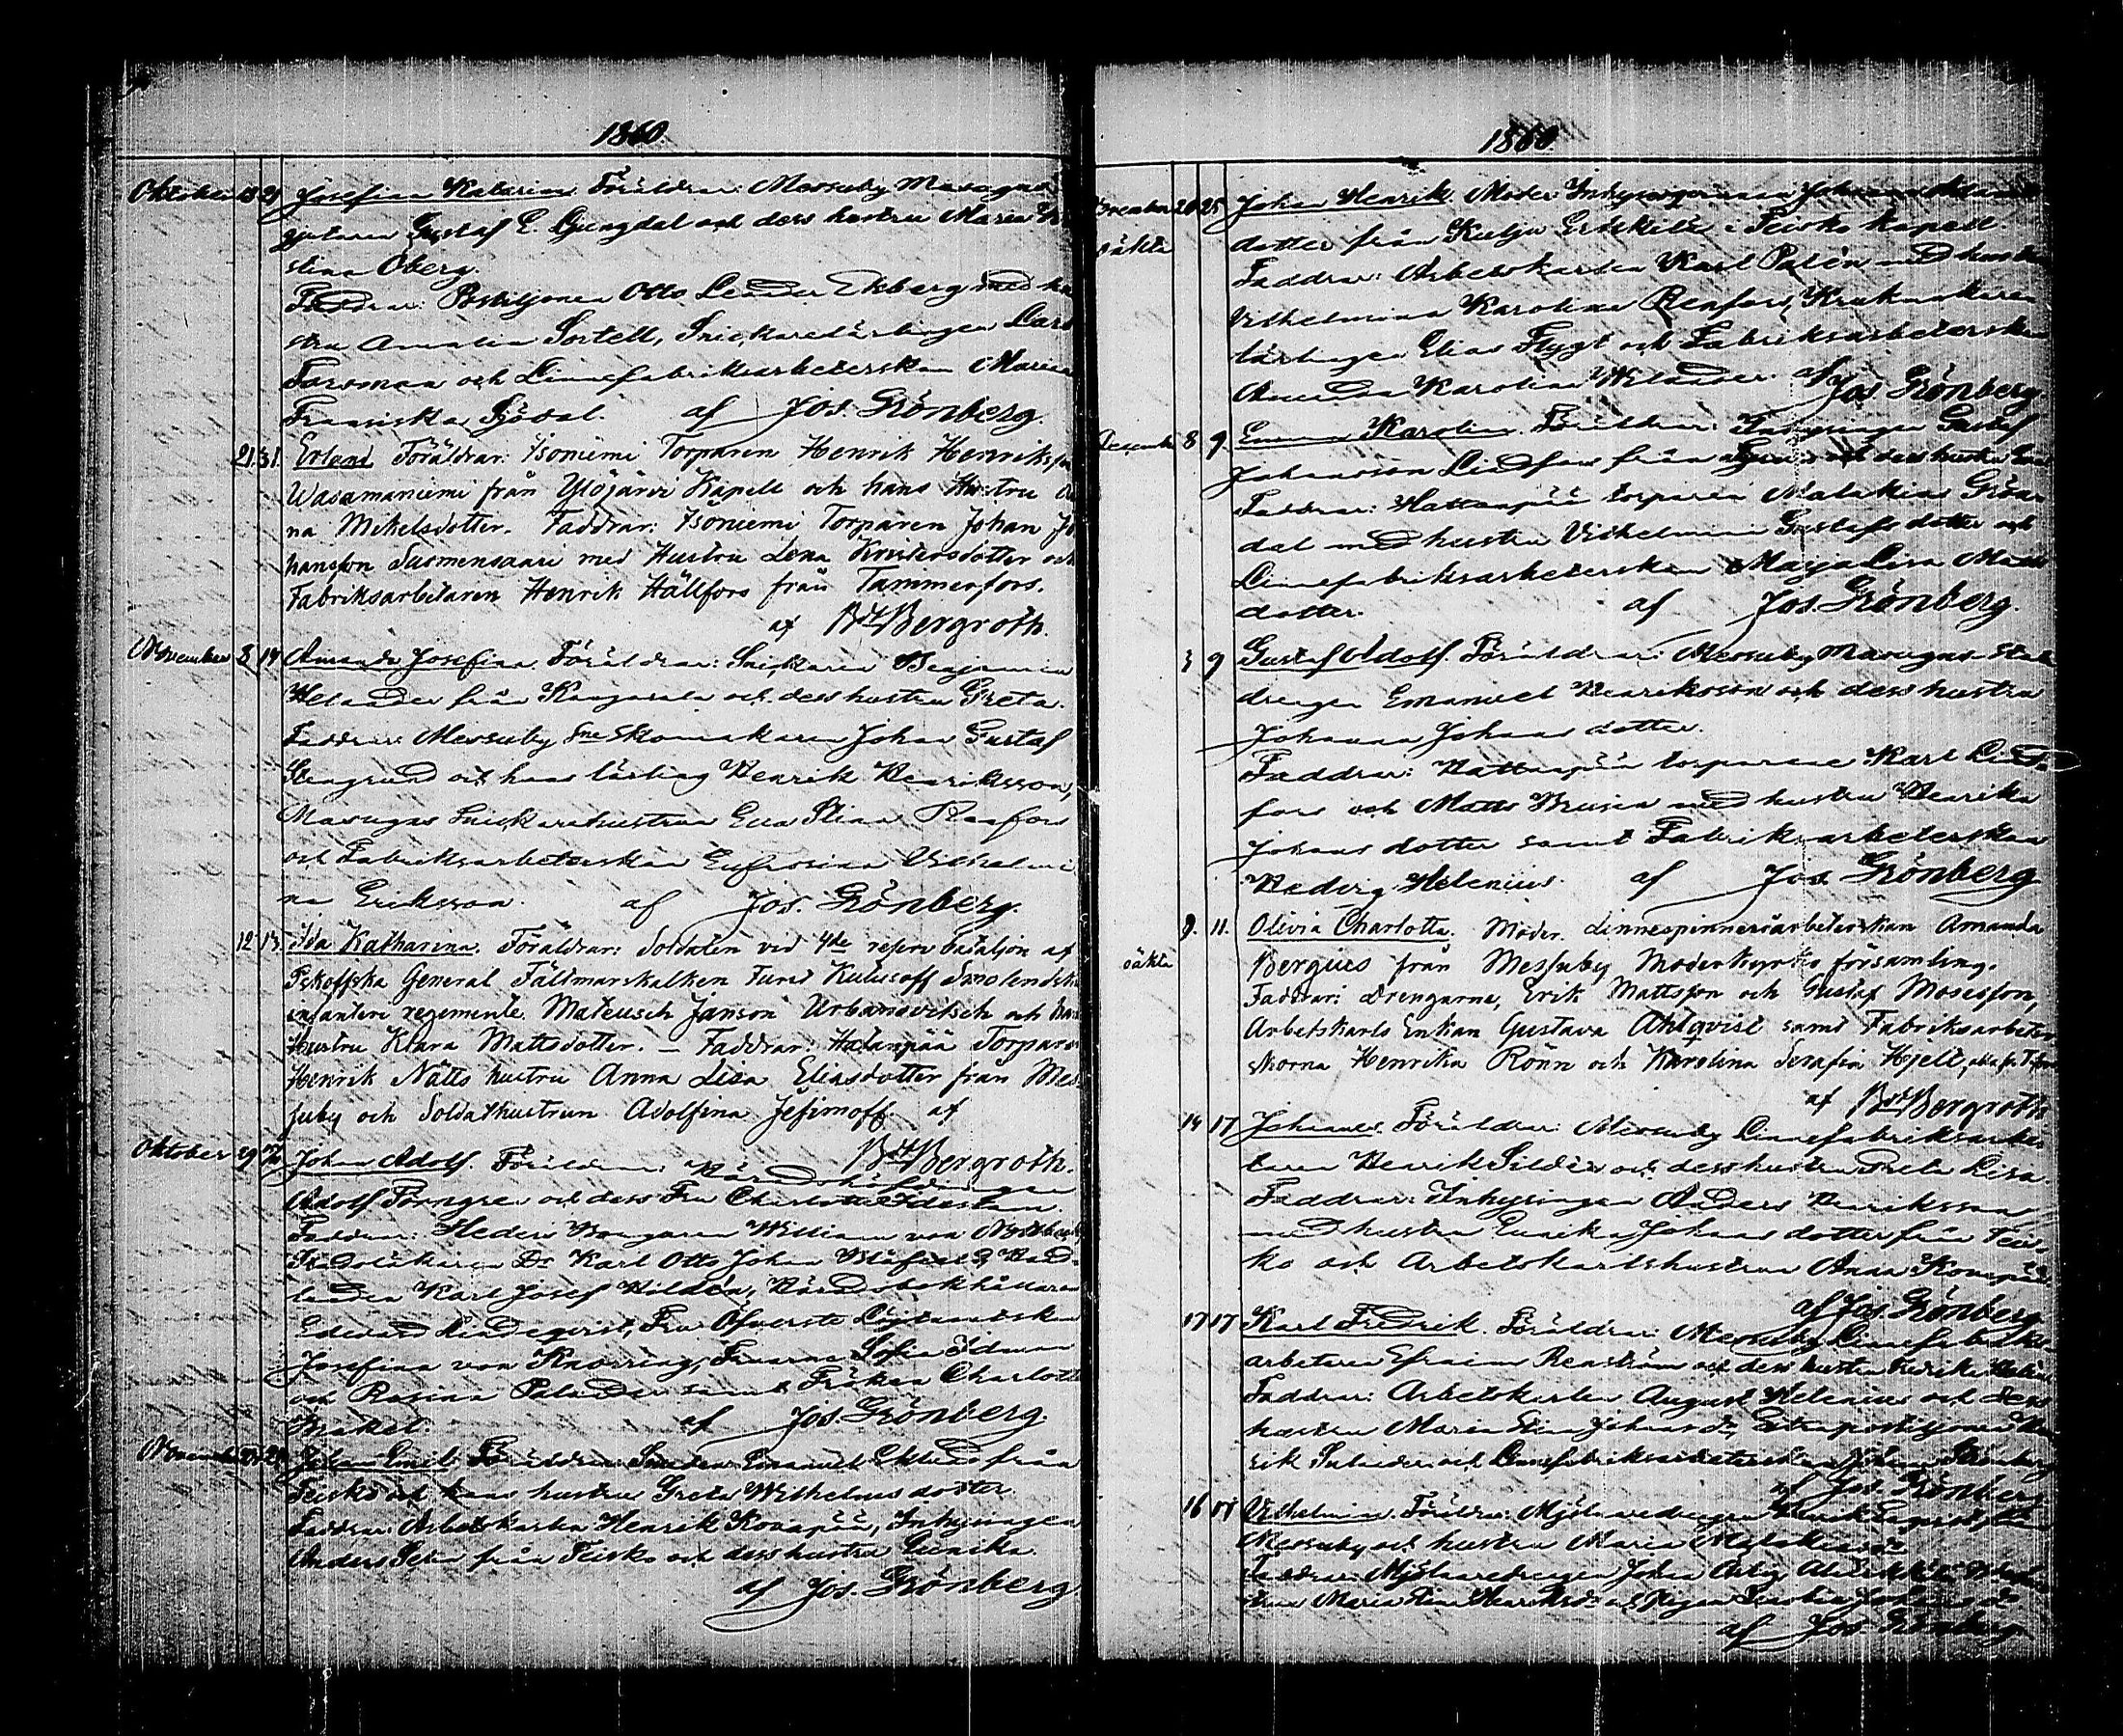 1860.
Oktober 18 21 Josefina Katarina. Föräldrar: Messuby Masugns
gjutaren Gustaf E. Ljungdal och dess hustru Maria
stina Öberg.
Faddrar: Postiljonen Otto Leander Ekberg med hu
stru Amalia Sortell, Snickarelärlingen Lars
Forsman och Linnefabriksarbeterskan Maria
Fransiska Sjödal. af Jos. Grönberg.
21. 31. Erland Föräldrar: Isoniemi Torparen Henrik Henriksson
Wasamaniemi från Ylöjärvi Kapell och hans Hustru
na Mikelsdotter. Faddrar: Isoniemi Torparen Johan Jo
hansson Susmensaari med Hustru Lena Kristersdotter och
Fabriksarbetaren Henrik Hällfors från Tammerfors.
af Bergroth.
November 8 14 Amanda Josefina. Föräldrar: Snickaren Benjamin
Helander från Kangasala och dess hustru Greta.
Faddrar: Messuby Sne Skomakaren Johan Gustaf
Stengrund och hans lärling Henrik Henriksson,
Masugns Snickarehustrun Eva Stina Renfors
och Fabriksarbeterskan Eufrosina Vilhelmi
na Eriksson. af Jos. Grönberg.
12 13. Ida Katharina. Föräldrar: Soldaten vid 4de reserv bataljon af
Pskoffska General Fältmarskalken Furst Kutusoff Smolenskis
infanteri regemente Mateusch Janson Urbanovitsch och hans
Hustru Klara Mattsdotter. — Faddrar: Hatanpää Torparen
Henrik Nätts hustru Anna Lisa Eliasdotter från Mes
suby och Soldathustrun Adolfina Jefimoff. af
Bergroth.
Oktober 29 Johan Adolf. Föräldrar: Häradshöfdingen
Adolf Törngren och dess Fru Charlotta Idestam.
Faddrar: Herrar Kongaren William von Nottbeck,
Stadsläkaren Dr Karl Otto Johan Blåfield, Hand
landen Karl Josef Hildén, Häradsbokhållaren
Edvard Lindeqvist, Fru Öfverste Löjtnantskan
Josefina von Knorring, Fruarna Sofia Idman
och Rosina Palander samt Fröken Charlotte
af Jos. Grönberg
November 24 Johan Emil. Föräldrar: Smeden Emanuel Eklund från
Teisko och hans hustru Greta Wilhelmsdotter.
Faddrar: Arbetskarlen Henrik Kovapää, Inhysingen
Anders Sten från Teisko och dess hustru Eunika.
af Jos. Grönberg
1860
November 20 25 Johan Henrik. Moder: Inhysespigan Johanna
oäkta dotter från Kulju i Teisko kapell.
Faddrar: Arbetskarlen Karl Palén med hustru
Vilhelmina Karolina Renfors, Krukmakare
lärlingen Elias Flygt och Fabriksarbeterskan
Amanda Karolina Helander. af Jos Grönberg
December 8 9. Emma Karolina. Föräldrar: Inhysingen Gustaf
Johansson Lindfors från och dess hustru
Faddrar: Hattanpää torparen Malakias Grön
dal med hustru Vilhelmina Gustafsdotter och
Linnefabriksarbeterskan Maja Lisa Matts
dotter. af Jos. Grönberg.
3 9 Gustaf Adolf. Föräldrar: Messuby Masugns Stal
drengen Emanuel Henriksson och dess hustru
Johanna Johansdotter.
Faddrar: Hattanpää torparene Karl Lind
fors och Matts med hustru Henrika
Johansdotter samt Fabriksarbeterskan
Hedvig Helenius. af Jos. Grönberg
9. 11. Olivia Charlotta. Moder. Linnespinneriarbeterskan Amanda
oäkta Bergius från Messuby Moderkyrko församling.
Faddrar: Drengarna, Erik Mattsson och Gustaf Mosesson,
Arbetskarls Enkan Gustava Ahlqvist samt Fabriksarbeter
skorna Henrika Rönn och Karolina Serafia Hjelt,
af Bergroth.
14 17 Johannes. Föräldrar: Messuby Linnefabriksarbe
taren Henrik Sildén och dess hustru Greta Lisa.
Faddrar: Inhysingen Anders Henriksson
med hustru Eunika Johansdotter från Teis
ko och Arbetskarlshustrun Anna Kovapää
af Jos. Grönberg.
17 17 Karl Fredrik. Föräldrar: Messuby Linnefabriks
arbetaren Efraim Renström och dess hustru Fredrika
Faddrar: Arbetskarlen August Helenius och dess
hustru Maria Stina Johansdr,
rik och Linnefabriksarbeterskan Grönberg
af Jos. Grönberg
16 Vilhelmina. Föräldrar: Mjölnaredrengen Henrik
Messuby och hustru Maria
Faddrar: Mjölnaredrengen Johan
stru Maria Henriksdr och Pigan
af Jos. Grönberg